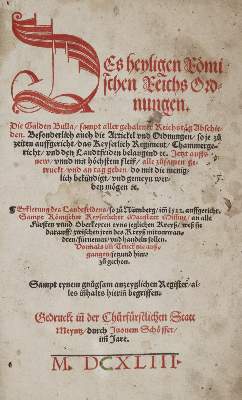 DEs heyligen Römi
schen Reichs Ord-
nungen.
Die Gulden Bulla, sampt aller gehaltener Reichstäg Abschie-
den. Besonderlich auch die Artickel vnd Ordnungen, so je zů
zeiten auffgericht, das Keyserlich Regiment, Chammerge-
richt, vnd den Landtfriden belangend ec. Jetzt auffs
new, vnnd mit höchstem fleiß, alle zůsamen ge-
truckt, vnd an tag geben, do mit die menig-
lich bekündigt, vnd gemeyn wer-
den mögen ec.
Erklerung des Landtfridens, so zů Nürnberg, im 1522. auffgericht.
Sampt Römischer Keyserlicher Maiestaet an alle
Fürsten vnnd Oberkeyten eyns jeglichen Kreyß, weß sie
darauff, zwischen jren des Kreyß mitverwan-
dten, fürnemen, vnd handeln sollen.
Vormals im Truck nie auß-
gangen, jetzund hin-
zů gethon.
Sampt eynem gnůgsam anzeyglichen Register, al-
les inhalts hierin begriffen.
Gedruckt in der Chürfürstlichen Statt
Meyntz, durch Juonem Schöffer,
im Jare.
M. DCXLIII.